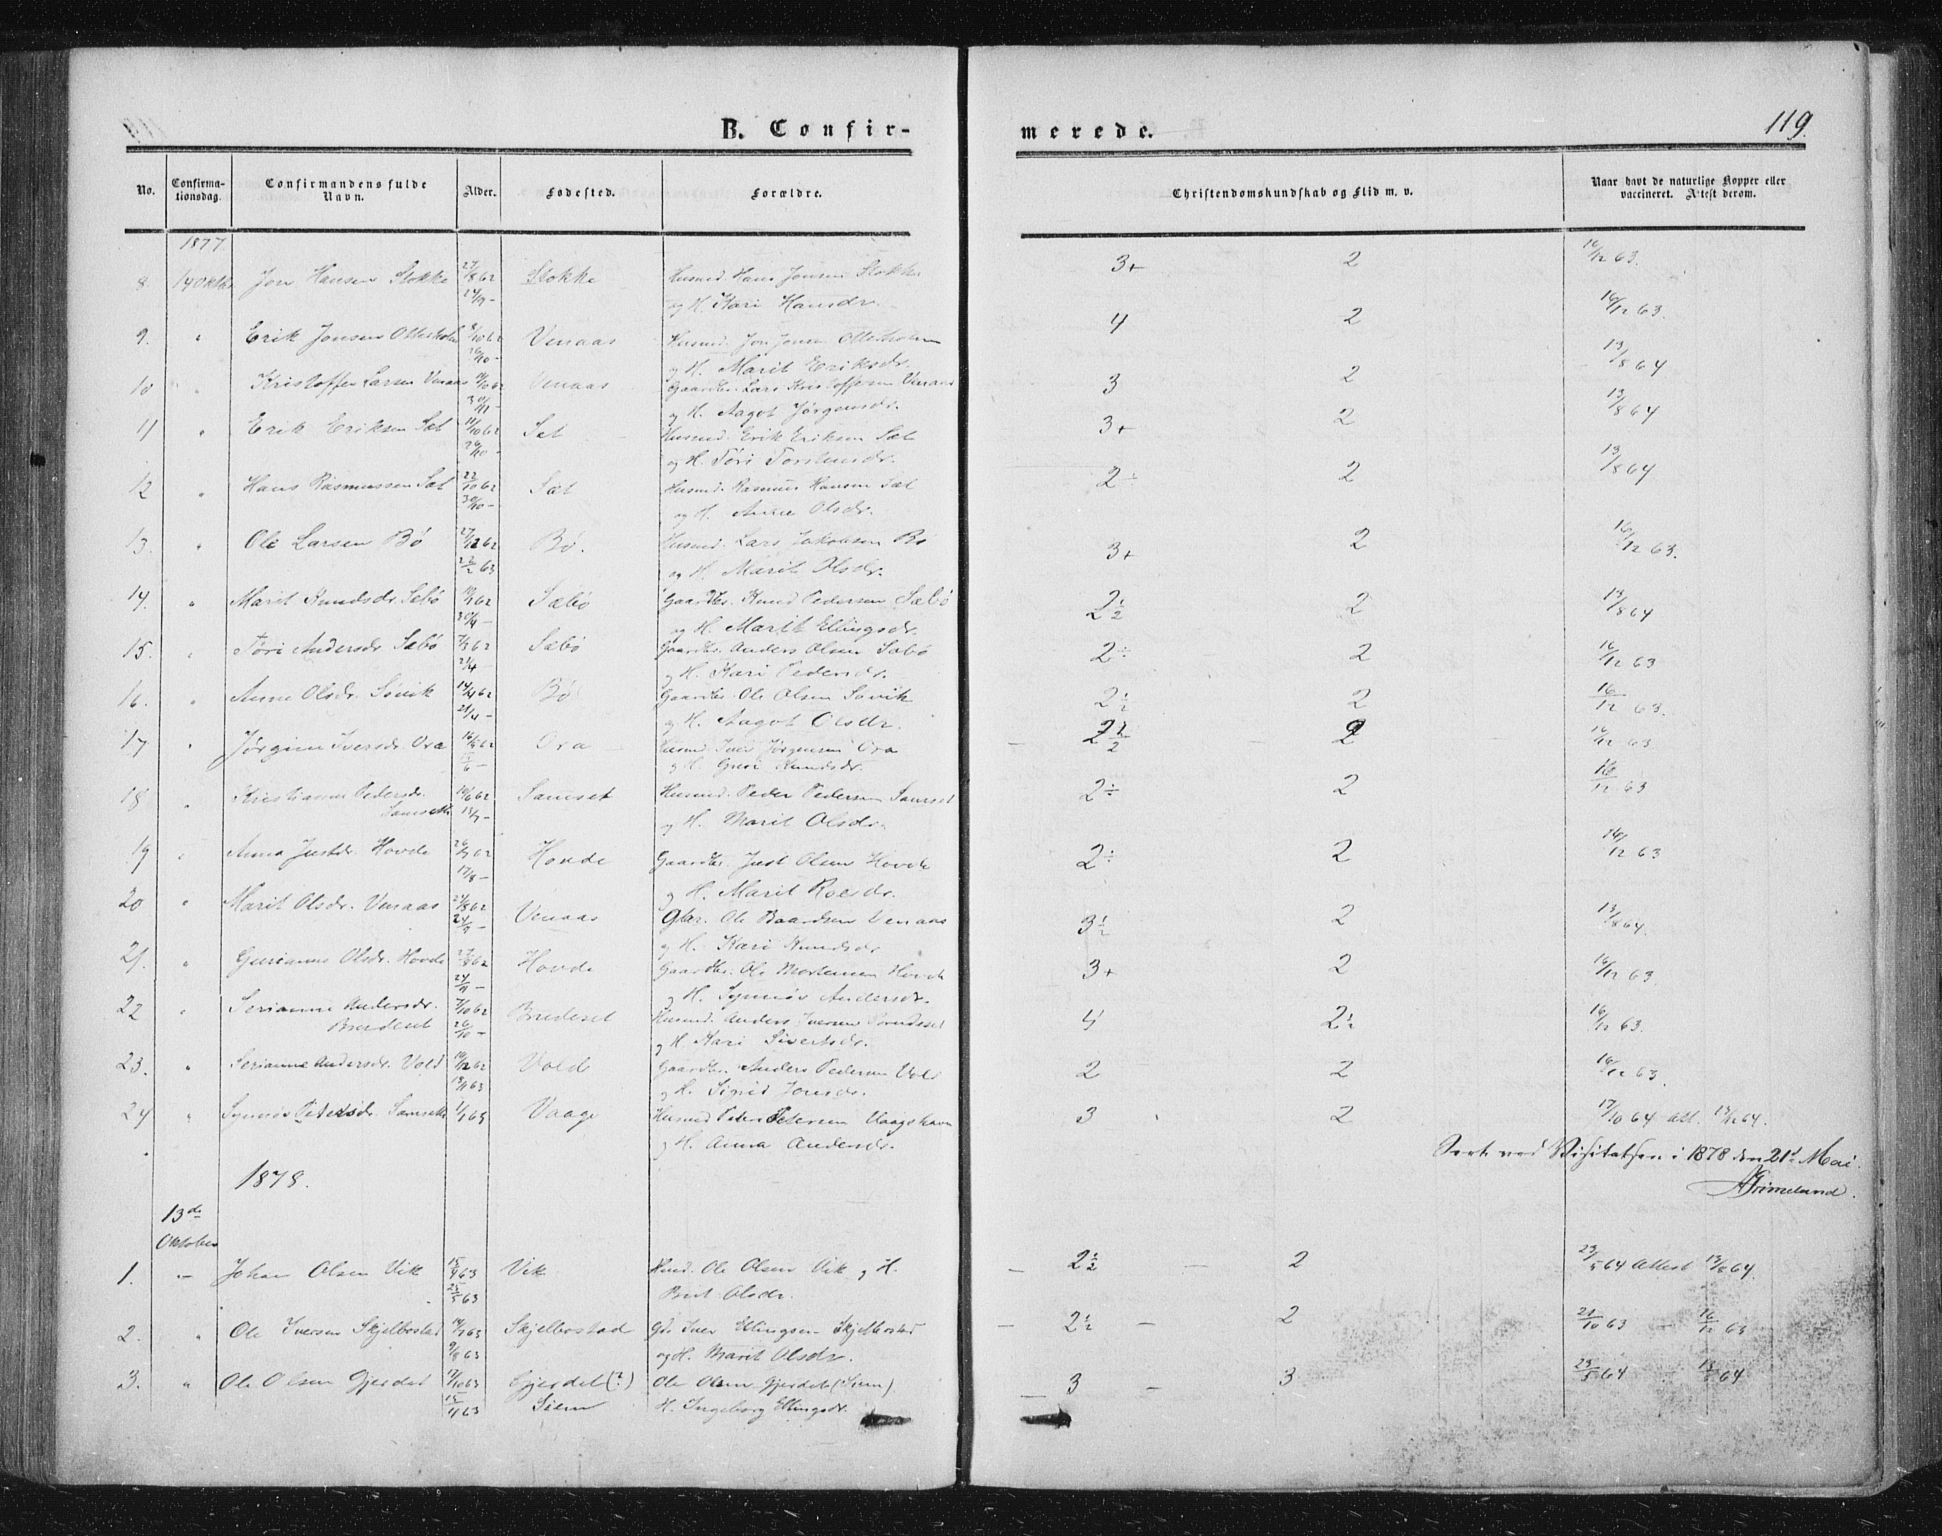 B. Confir-
merede.
119.
No.
Confirma-
tionsdag.
Confirmandens fulde
Navn.
Alder.
Fødested.
Forældre.
Christendomskundskab og Flid m. v.
Naar havt de naturlige Kopper eller
vaccineret. Attest derom.
1877.
8 14 Oktbr Jon Hansen Stokke 27/8 62 Stokke Husmd. Hans Jonsen Stokke 3+ 2 16/12 63.
og H. Kari Hansdr.
9. " Erik Jonsen 8/10 62 Venaas Husmd. Jon Jonsen 4 2 16/12 63.
26/10 - og H. Marit Eriksdr.
10 " Kristoffer Larsen Venaas Venaas Gaardbr. Lars Kristoffersen Venaas 3 2 13/8 64
og H. Aagot Jørgensdr.
11 " Erik Eriksen Sæt 11/10 62 Sæt Husmd. Erik Eriksen Sæt 3+ 2 13/8 64
26/10 - og H. Tøri Torstensdr.
12 " Hans Rasmussen Sæt 22/10 62 Sæt Husmd. Rasmus Hansen Sæt 2÷ 2 13/8 64
30/10 - og H. Anne Olsdr.
13. " Ole Larsen Bø 27/12 62 Bø. Husmd. Lars Jakobsen Bø 3+ 2 16/12 63.
22/2 63 og H. Marit Olsdr.
14. " Marit Knudsdr. Sæbø Sæbø Gaardbr. Knud Pedersen Sæbø 2½ 2 13/8 64
og H. Marit Ellingsdr.
15. " Tøri Andersdr Sæbø Sæbø Gaardbr. Anders Olsen Sæbø 2÷ 2 16/12 63
og H. Kari Pedersdr.
16. " Anne Olsdr. Søvik 14/4 62 Bø Gaardbr. Ole Olsen Søvik 2½ 2 16/12 63.
21/4 - og H. Aagot Olsdr.
17 " Jørgine Iversdr. Ora Ora Husmd. Iver Jørgensen Ora - 2½ - 2 16/12 63
og H. Guri Knudsdr.
18 " Kristianne Pedersdr. 62 Samset Husmd. Peder Pedersen Samset 2÷ 2 16/12 63
og H. Marit Olsdr.
19 " Anna Justdr. Hovde 62 Hovde Gaardbr. Just Olsen Hovde 2÷ 2 16/12 63
17/8 - og H. Marit Roesdr.
20 " Marit Olsdr. Venaas 24/8 62 Venaas Gbr. Ole Baardsen Venaas 3½ 2 13/8 64.
og H. Kari Knudsdr
21. " Gurianne Olsdr. Hovde 62 Hovde Gaardbr. Ole Mortensen Hovde 3+ 2 16/12 63
og H. Synnøv Andersdr.
22 " Serianne Andersdr. 7/10 62 Bredeset Husmd. Anders Iversen 4 2½ 16/12 63.
Bredeset 26/10 - og H. Kari Sivertsdr.
23. " Serianne Andersdr. Vold 62 Vold Gaardbr. Anders Pedersen Vold 2 2 16/12 63.
og H. Sigrid Jonsdr.
24 " 1/1 63 Vaage Husmd Peder Petersen Vaagshavn 3 2 17/10 64 Att. 64.
og H. Anna Andersdr.
1878 den 21de Mai.
Grimelund.
1878.
13de
Oktober
1. - Johan Olsen Vik 63 Vik Husmd. Ole Olsen Vik og H. - 2½ - 2 23/5 64 Attest 64.
25/5 63 Brit Olsdr.
2. " Ole Iversen Skjelbostad 63 Skjelbostad Gbr Iver Ellingsen Skjelbostad - 2½ - 2 21/10 63 - 16/12 63
9/8 63 og H. Marit Olsdr.
3. " Ole Olsen Gjerdet 17/10 63 Gjerdet (?) Ole Olsen Gjerdet (Siem) - 3 - 3 23/5 64 64
15/11 63 Siem H. Ingeborg Ellingsdr.